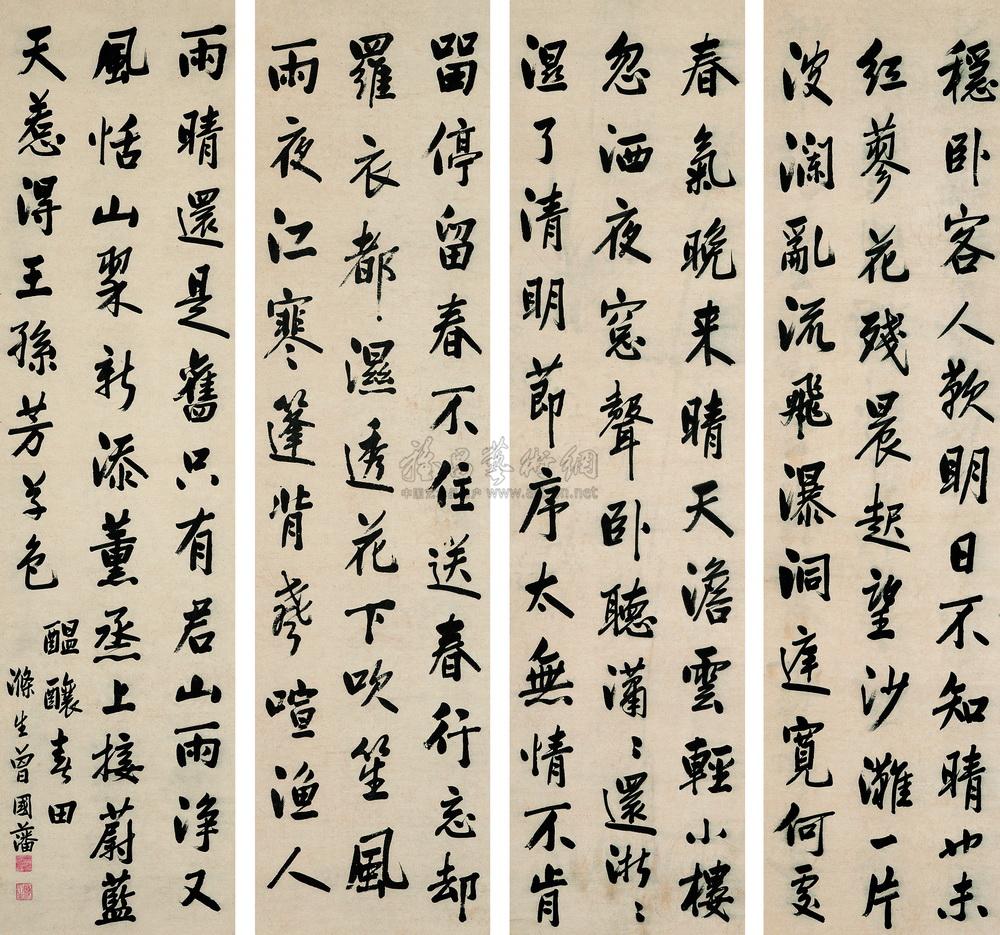 穩臥客人歎明日不知晴也未
紅蓼花殘晨起望沙灘一片
波瀾亂流飛瀑洞庭寬何處
春氣晚来晴天澹雲輕小樓
忽洒夜窓聲臥聽瀟〻還淅〻
濕了清明節序太無情不肯
畱停留春不住送春行忘却
羅衣都濕透花下吹笙風
雨夜江寒篷背聲喧漁人
雨晴還是舊只有君山雨淨又
風恬山翠新添薰蒸上接蔚藍
天惹得王孫芳草色
醞釀春田
滌生曾國藩